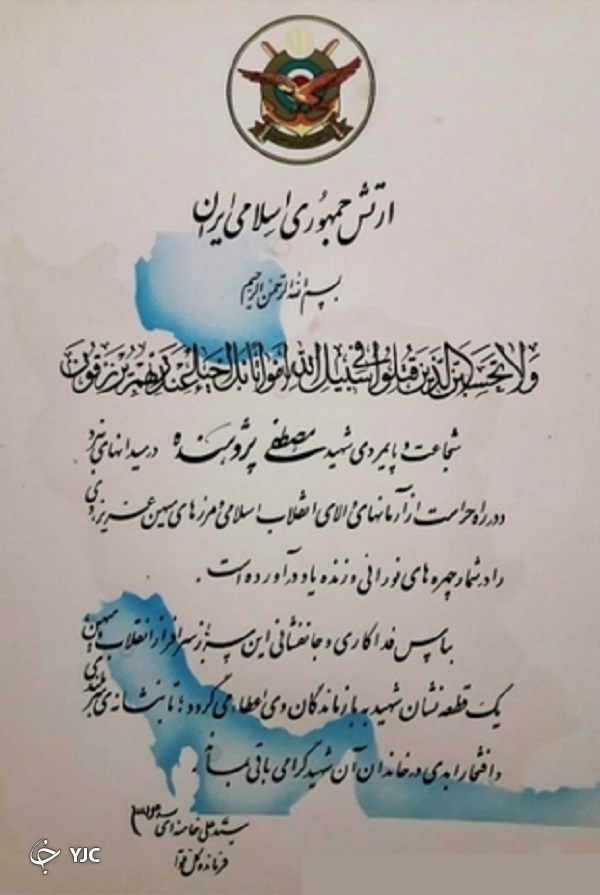 ارتش جمهوری اسلامی ایران
بسم الله الرحمن الرحیم
ولا تحسبن الذین قتلوا فی سبیل الله امواتا بل احیاء عند ربهم یرزقون
شجاعت و پایمردی شهید مصطفی پژوهنده در میدانهای نبرد
و در راه حراست از آرمانهای والای انقلاب اسلامی و مرزهای میهن عزیز، وی
را در شمار چهره های نورانی و زنده یاد درآورده است.
بپاس فداکاری و جانفشانی این سرباز سرافراز انقلاب و میهن
یک قطعه نشان شهید به بازماندگان وی اعطاء می گردد، تا نشانه ی سربلندی
و افتخار ابدی در خاندان آن شهید گرامی باقی بماند.
سید علی خامنه ای
فرمانده کل قوا
YJC